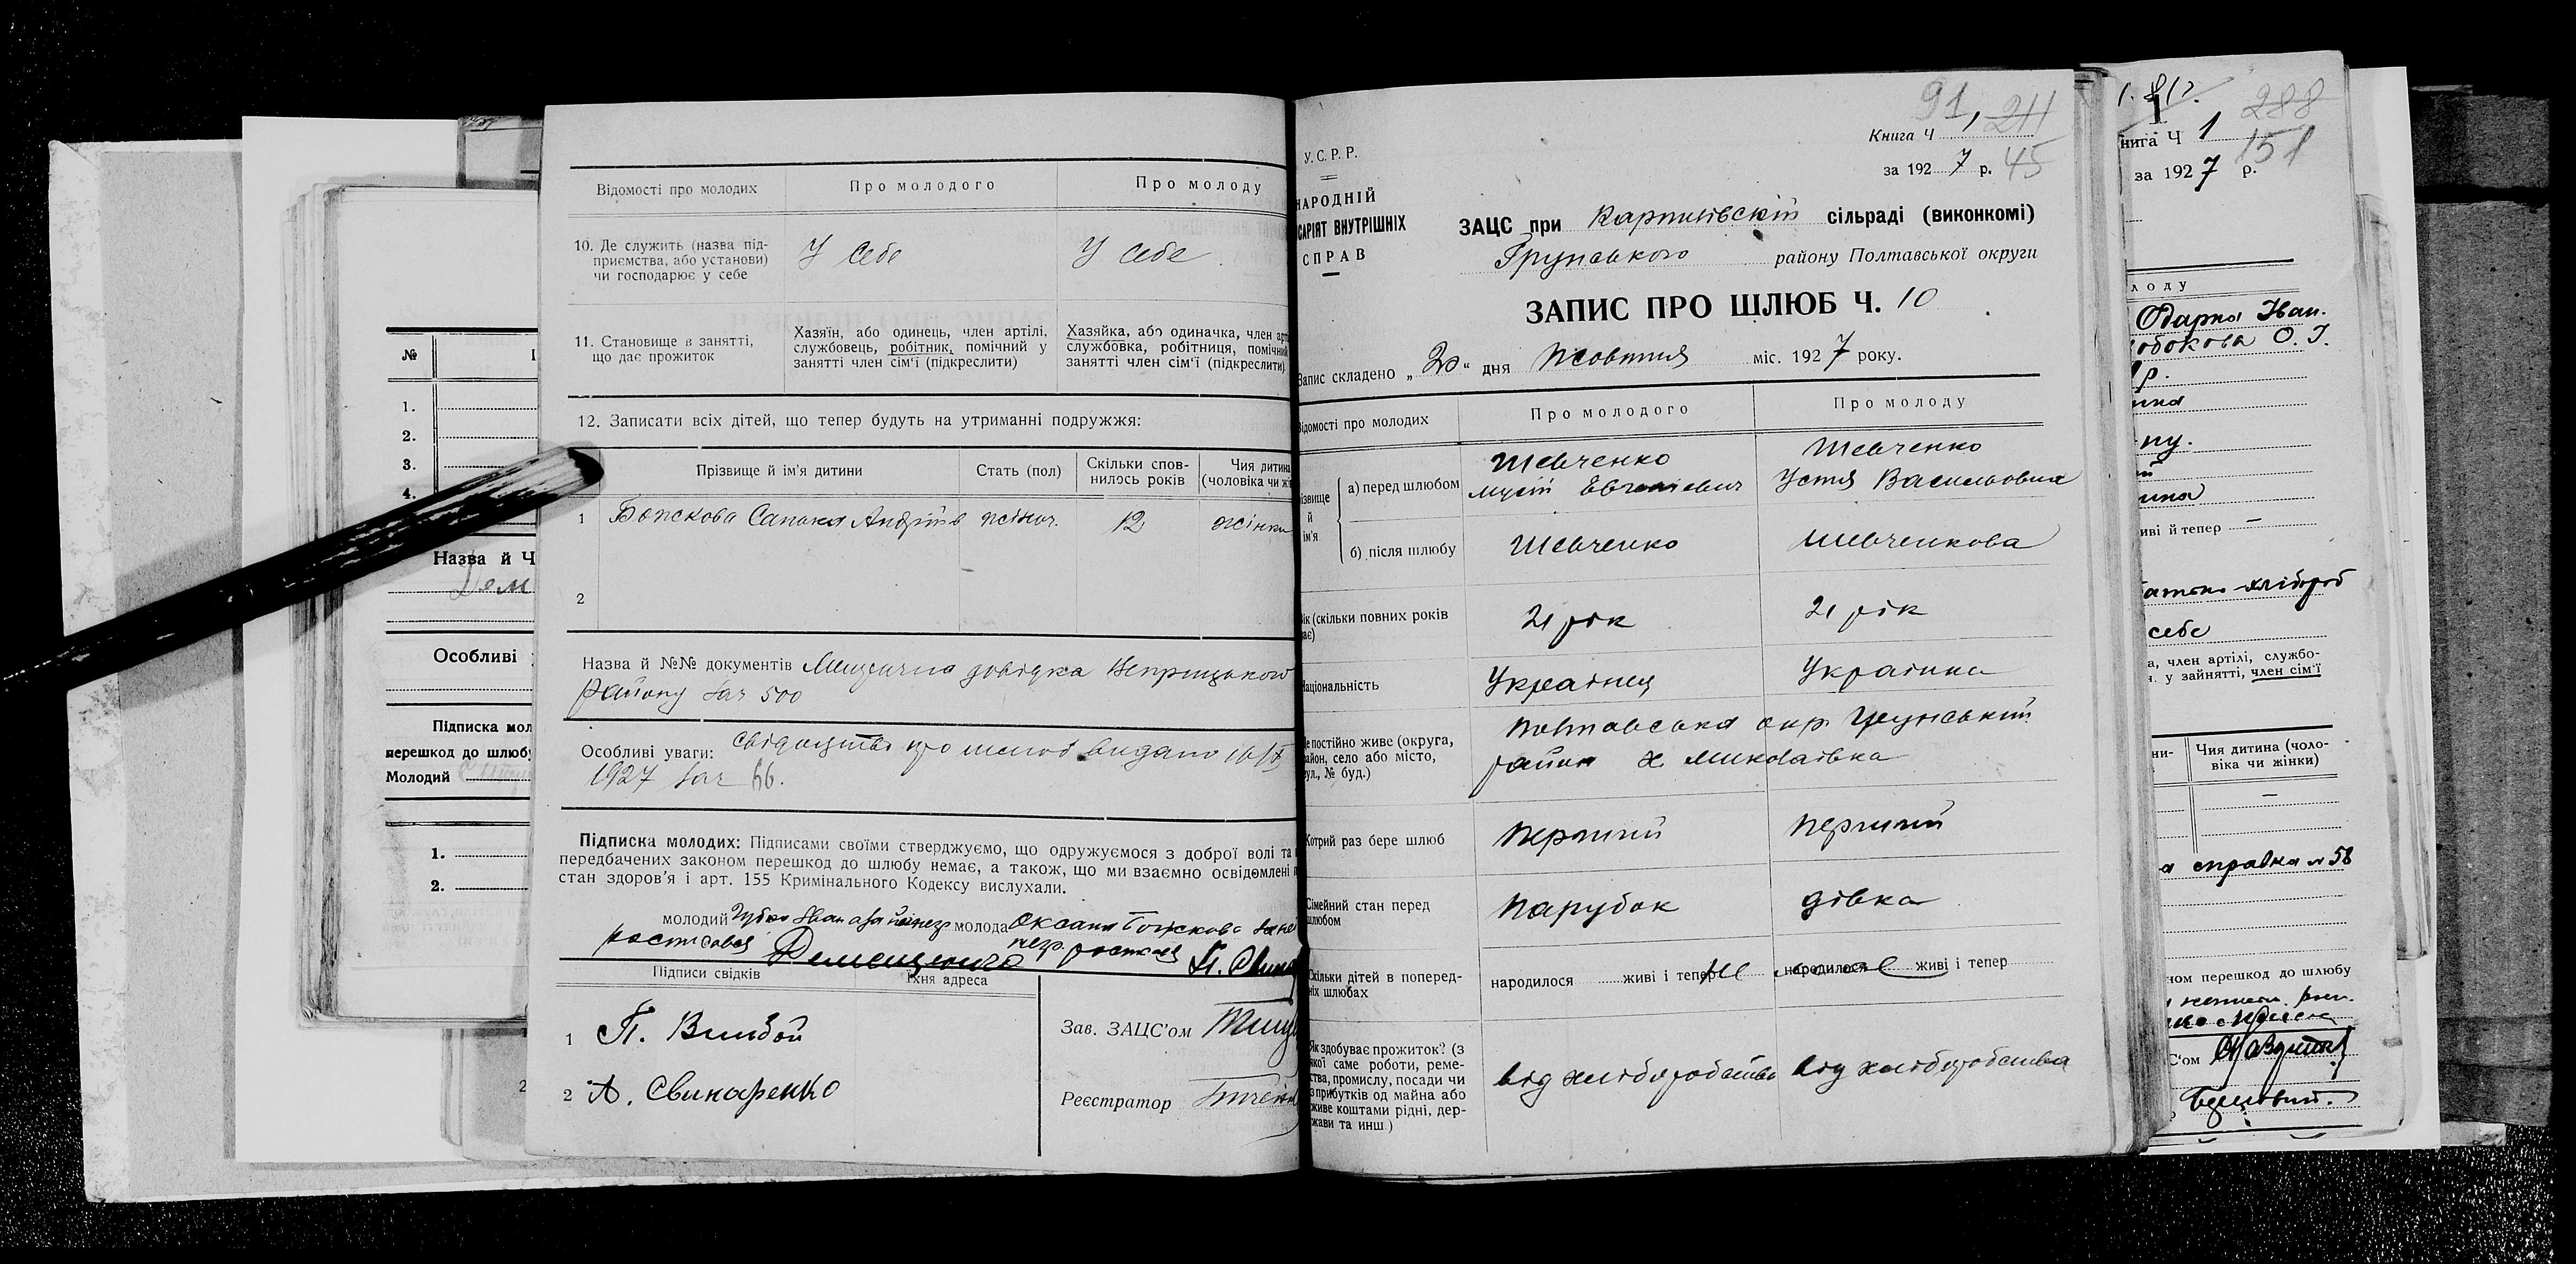 Відомості про молодих
Про молодого
Про молоду
10. Де служить (назва під-
приємства, або установи)
чи господарює у себе
У себе
У себе
11. Становище в занятті,
що дає прожиток
Хазяїн, або одинець, член артілі,
службовець, робітник, помічний у
занятті член сім'ї (підкреслити)
Хазяйка, або одиначка, член арт
службовка, робітниця, помічний
занятті член сім'ї (підкреслити)
12. Записати всіх дітей, що тепер будуть на утриманні подружжя:
Прізвище й ім'я дитини
Стать (пол)
Скільки спов-
нилось років
Чия дитина
(чоловіка чи ж
1 Божкова Андріїв жіноч. 12 жінки
2
Назва й №№ документів довідка
району за ч 500
Особливі уваги: свідоцтво про шлюб видано 16/X
1927 за ч 66.
Підписка молодих: Підписами своїми стверджуємо, що одружуємося з доброї волі та
передбачених законом перешкод до шлюбу немає, а також, що ми взаємно освідомлені п
стан здоров'я і арт. 155 Кримінального Кодексу вислухали.
молодий Іван молода Оксана Божкова за неї
Підписи свідків
Їхня адреса
1 П.
2 А. Свинаренко
Зав. ЗАЦС'ом
Реєстратор
№
1.
2.
3.
4.
Назва й Ч
Дем
Особливі
Підписка мол
перешкод до шлюбу
Молодий
1.
2.
2
91, 24
Книга Ч 1
за 192 7 р. 45
У.С.Р.Р.
НАРОДНІЙ
САРІЯТ ВНУТРІШНІХ
СПРАВ
ЗАЦС при Карпилівскій сільраді (виконкомі)
Грунського району Полтавської округи
ЗАПИС ПРО ШЛЮБ Ч. 10
Запис складено „20“ дня Жовтня міс. 1927 року.
Відомості про молодих
Про молодого
Про молоду
ізвище
й
ім'я
а) перед шлюбом
Шевченко
Мусій Евгенієвич
Шевченко
Устя Васильовна
б) після шлюбу
Шевченко
Шевченкова
Вік (скільки повних років
має)
21 рік
21 рік
Національність
Українец
Українка
Де постійно живе (округа,
район, село або місто,
вул., № буд.)
Полтавська окр. Грунський
район х Миколаівка
Котрий раз бере шлюб
Перший
Перший
Сімейний стан перед
шлюбом
Парубок
дівка
Скільки дітей в поперед-
ніх шлюбах
народилося живі і тепер
народилося живі і тепер
Як здобуває прожиток? (з
якої саме роботи, реме-
ства, промислу, посади чи
з прибутків од майна або
живе коштами рідні, дер-
жави та инш.)
від хліборобства
від хліборобства
288
нига Ч 1
151
за 1927 р.
лоду
Одарка Іван.
О. І.
р.
иві й тепер —
хлібороб
себе
а, член артілі, службо-
н. у зайнятті, член сім'ї
ни-
Чия дитина (чоло-
віка чи жінки)
—
а справка № 58
ном перешкод до шлюбу
С'ом